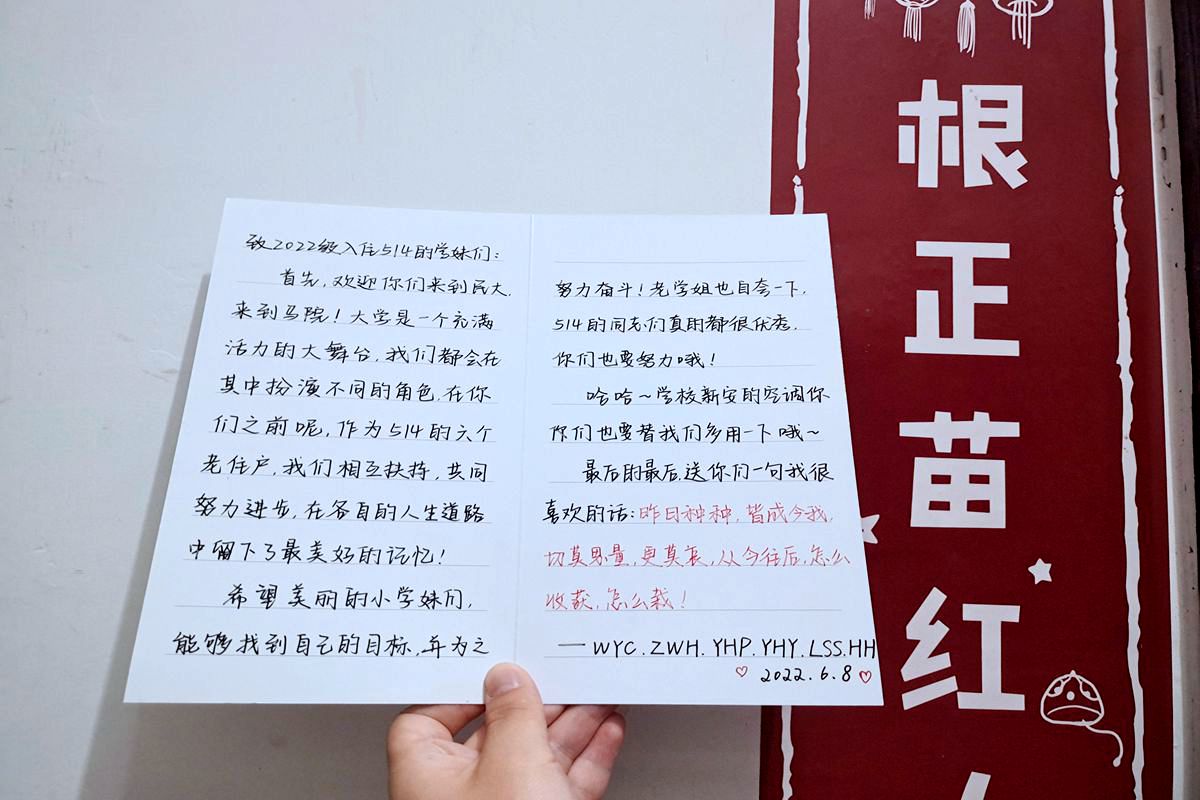 致2022级入住514的学妹们:
首先,欢迎你们来到民大,
来到马院!大学是一个充满
活力的大舞台,我们都会在
其中扮演不同的角色,在你
们之前呢,作为514的六个
老住户,我们相互扶持,共同
努力进步,在各自的人生道路
中留下了最美好的记忆!
希望美丽的小学妹们,
能够找到自己的目标,并为之
努力奋斗!老学姐也自夸一下,
514的同志们真的都很优秀,
你们也要努力哦!
哈哈~学校新安的空调你
你们也要替我们多用一下哦~
最后的最后,送你们一句我很
喜欢的话:昨日种种,皆成今我,
切莫思量,更莫哀,从今往后,怎么
收获,怎么栽!
—WYC.ZWH.YHP.YHY.LSS.HH
♡ 2022.6.8 ♡
根正苗红